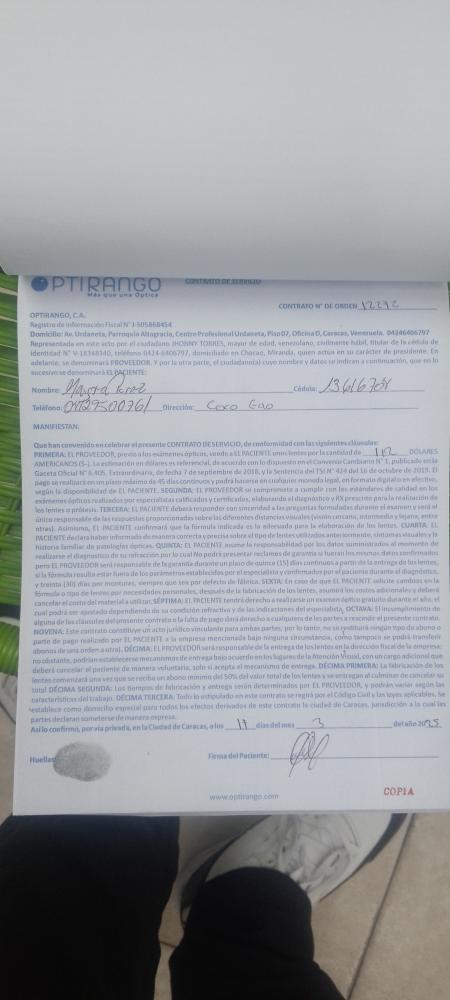 OPTIRANGO
Más que una Optica
CONTRATO DE SERVICIO
CONTRATO N° DE ORDEN 12292
OPTIRANGO, C.A.
Registro de Información Fiscal N° J-505868454
Domicilio: Av. Urdaneta, Parroquia Altagracia, Centro Profesional Urdaneta, Piso 07, Oficina D, Caracas, Venezuela. 04246406797
Representada en este acto por el ciudadano JHONNY TORRES, mayor de edad, venezolano, civilmente hábil, titular de la cédula de
identidad N° V-18348340, teléfono 0424-6406797, domiciliado en Chacao, Miranda, quien actúa en su carácter de presidente. En
adelante, se denominará PROVEEDOR. Y por la otra parte, el ciudadano(a) cuyo nombre y datos se indican a continuación, que en lo
sucesivo se denominará EL PACIENTE:
Nombre: Cédula:
Teléfono: Dirección: Coco
MANIFIESTAN:
Que han convenido en celebrar el presente CONTRATO DE SERVICIO, de conformidad con las siguientes cláusulas:
PRIMERA: EL PROVEEDOR, previo a los exámenes ópticos, vende a EL PACIENTE unos lentes por la cantidad de DÓLARES
AMERICANOS ($-). La estimación en dólares es referencial, de acuerdo con lo dispuesto en el Convenio Cambiario N° 1, publicado en la
Gaceta Oficial N° 6.405, Extraordinaria, de fecha 7 de septiembre de 2018, y la Sentencia del TSJ N° 424 del 16 de octubre de 2019. El
pago se realizará en un plazo máximo de 45 días continuos y podrá hacerse en cualquier moneda legal, en formato digital o en efectivo,
según la disponibilidad de EL PACIENTE. SEGUNDA: EL PROVEEDOR se compromete a cumplir con los estándares de calidad en los
exámenes ópticos realizados por especialistas calificados y certificados, elaborando el diagnóstico y RX prescrito para la realización de
los lentes o prótesis. TERCERA: EL PACIENTE deberá responder con sinceridad a las preguntas formuladas durante el examen y será el
único responsable de las respuestas proporcionadas sobre las diferentes distancias visuales (visión cercana, intermedia y lejana, entre
otras). Asimismo, EL PACIENTE confirmará que la fórmula indicada es la adecuada para la elaboración de los lentes. CUARTA: EL
PACIENTE declara haber informado de manera correcta y precisa sobre el tipo de lentes utilizados anteriormente, síntomas visuales y la
historia familiar de patologías ópticas. QUINTA: EL PACIENTE asume la responsabilidad por los datos suministrados al momento de
realizarse el diagnostico de su refracción por lo cual No podrá presentar reclamos de garantía si fueran los mismos datos confirmados
pero EL PROVEEDOR será responsable de la garantía durante un plazo de quince (15) días continuos a partir de la entrega de los lentes,
si la fórmula resulto estar fuera de los parámetros establecidos por el especialista y confirmados por el paciente durante el diagnóstico,
y treinta (30) días por monturas, siempre que sea por defecto de fábrica. SEXTA: En caso de que EL PACIENTE solicite cambios en la
fórmula o tipo de lentes por necesidades personales, después de la fabricación de los lentes, asumirá los costos adicionales y deberá
cancelar el costo del material a utilizar. SÉPTIMA: EL PACIENTE tendrá derecho a realizarse un examen óptico gratuito durante el año, el
cual podrá ser ajustado dependiendo de su condición refractiva y de las indicaciones del especialista. OCTAVA: El incumplimiento de
alguna de las cláusulas del presente contrato o la falta de pago dará derecho a cualquiera de las partes a rescindir el presente contrato.
NOVENA: Este contrato constituye un acto jurídico vinculante para ambas partes, por lo tanto, no se restituirá ningún tipo de abono o
parte de pago realizado por EL PACIENTE a la empresa mencionada bajo ninguna circunstancia, como tampoco se podrá transferir
abonos de una orden a otra). DÉCIMA: EL PROVEEDOR será responsable de la entrega de los lentes en la dirección fiscal de la empresa;
no obstante, podrían establecerse mecanismos de entrega bajo acuerdo en los lugares de la Atención Visual, con un cargo adicional que
deberá cancelar el paciente de manera voluntaria, solo si acepta el mecanismo de entrega. DÉCIMA PRIMERA: La fabricación de los
lentes comenzará una vez que se reciba un abono mínimo del 50% del valor total de los lentes y se entregan al culminar de cancelar su
total DÉCIMA SEGUNDA: Los tiempos de fabricación y entrega serán determinados por EL PROVEEDOR, y podrán variar según las
características del trabajo. DÉCIMA TERCERA: Todo lo estipulado en este contrato se regirá por el Código Civil y las leyes aplicables. Se
establece como domicilio especial para todos los efectos derivados de este contrato la ciudad de Caracas, jurisdicción a la cual las
partes declaran someterse de manera expresa.
Así lo confirmo, por vía privada, en la Ciudad de Caracas, a los días del mes 3 del año 2025
Huellas Firma del Paciente:
www.optirango.com
COPIA